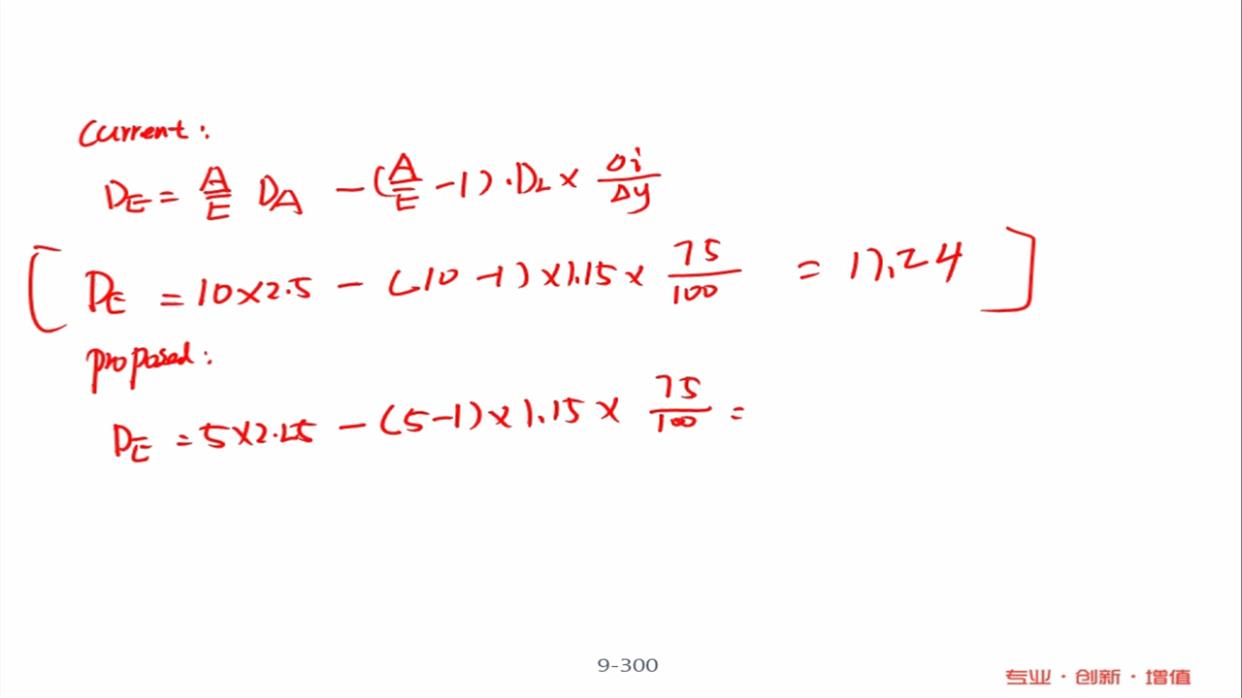 Current:
D_E = A/E D_A - (A/E - 1) · D_L × Δi/Δy
[ D_E = 10×2.5 - (10-1)×1.15× 75/100 = 17.24 ]
Proposed:
D_E = 5×2.25 - (5-1)×1.15× 75/100 =
9-300
专业·创新·增值